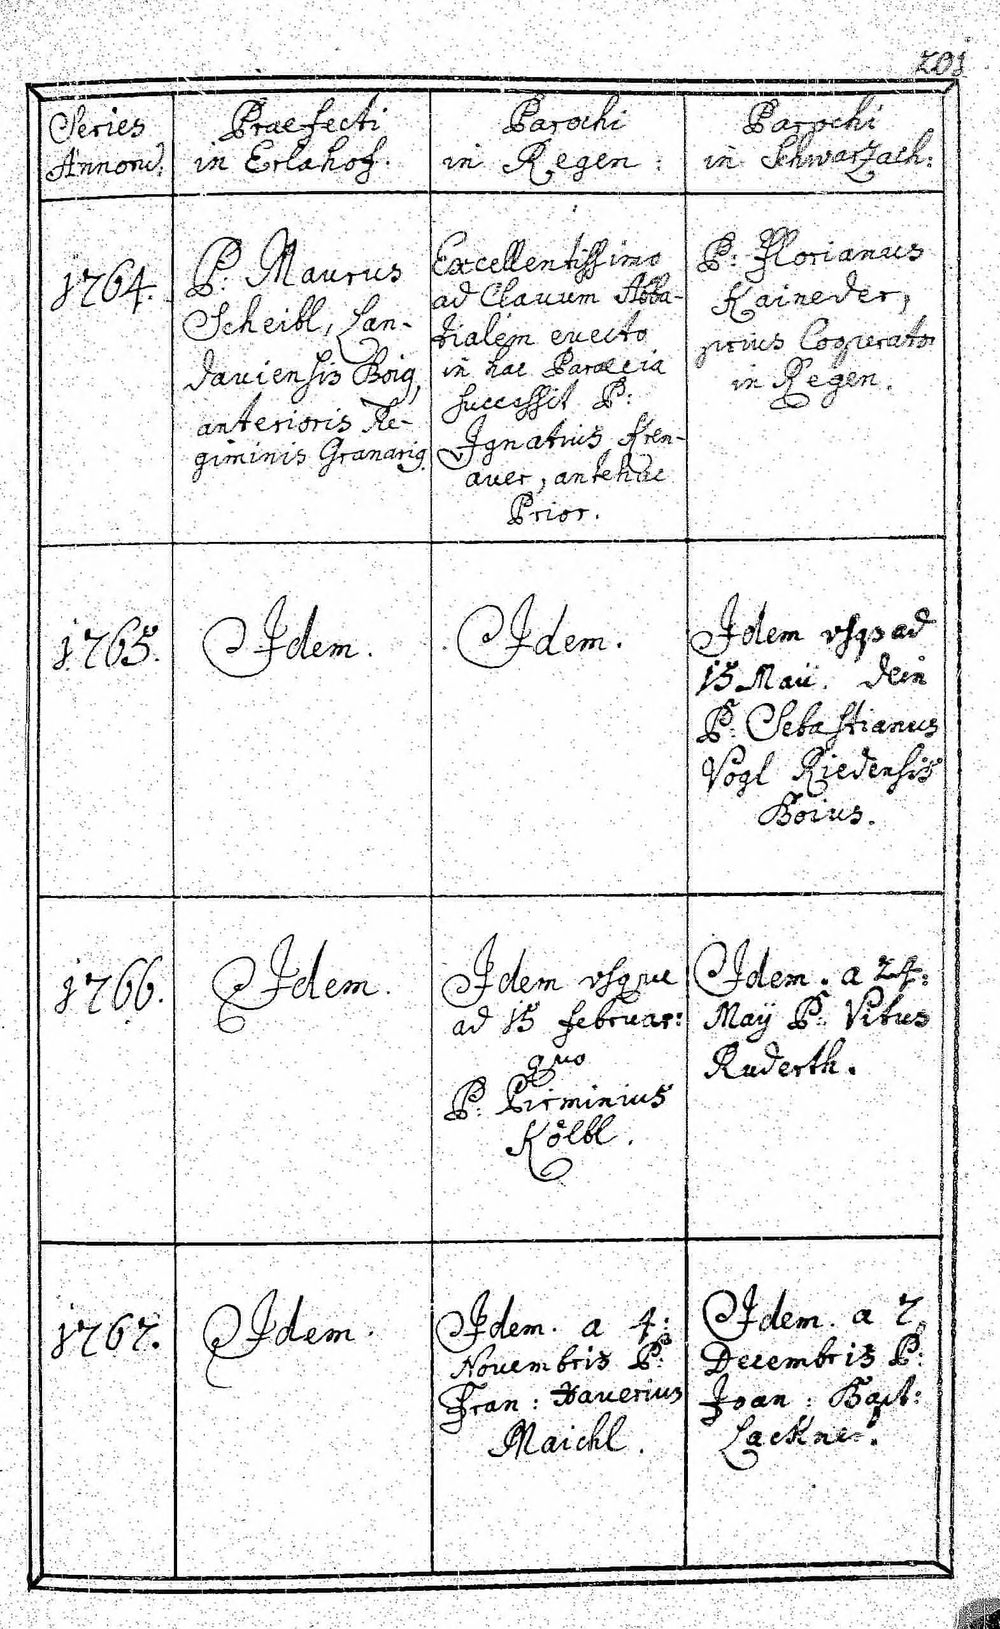 201
Series
Annorũ.
Praefecti
in Erlahof.
Parochi
in Regen :
Parochi
in Schwarzach:
1764.
P: Maurus
Scheibl, Lan-
daviensis Boig,
anterioris Re-
giminis Granarig.
Excellentissimo
ad Clauum Abba-
tialem euecto
in hac Paroecia
successit P:
Ignatius Fren-
auer, antehac
Prior.
P: Florianus
Kaineder,
prius Cooperator
in Regen.
1765.
Idem.
Idem.
Idem usqs ad
15 Maii. dein
P: Sebastianus
Vogl Riedensis
Boius.
1766.
Idem.
Idem usque
ad 15 februar:
quo
P: Pirminius
Kölbl.
Idem. a 24:
Maÿ P: Vitus
Ruderth.
1767.
Idem.
Idem. a 4:
Novembris P:
Fran: Xaverius
Maichl.
Idem. a 7
Decembris P:
Joan: Bapt:
Lackner.